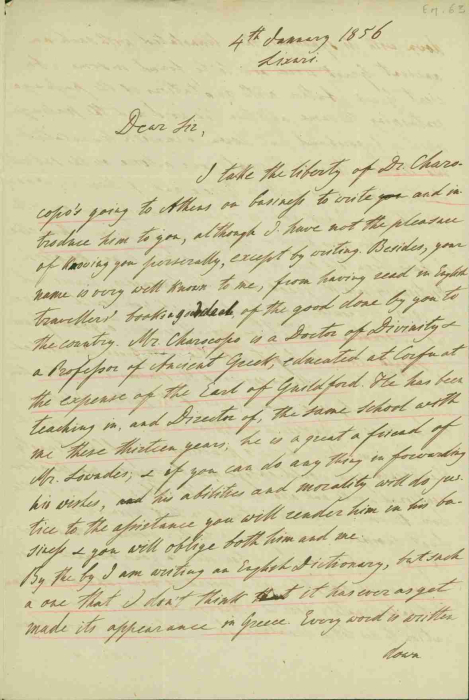 4th January 1856
Lixuri.
Dear Sir,
I take the liberty of Dr. Charo-
copo's going to Athens on business to write you and in
troduce him to you, although I have not the pleasure
of knowing you personally, except by writing. Besides, your
name is very well known to me, from having read in English
travellers' books a good deal of the good done by you to
the country. Mr. Charocopo is a Doctor of Divinity &
a Professor of Ancient Greek, educated at Corfu at
the expense of the Earl of Guildford. He has been
teaching in, and Director of, the same school with
me these thirteen years; he is a great a friend of
Mr. Lowndes; & if you can do any thing in forwarding
his wishes, and his abilities and morality will do jus-
tice to the assistance you will render him in his bu-
siness & you will oblige both him and me.
By the by I am writing an English Dictionary, but such
a one that I don't think that it has ever as yet
made its appearance in Greece. Every word is written
down